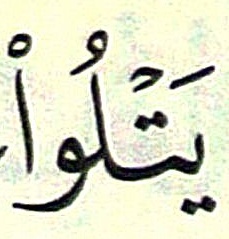 يَتْلُواْ